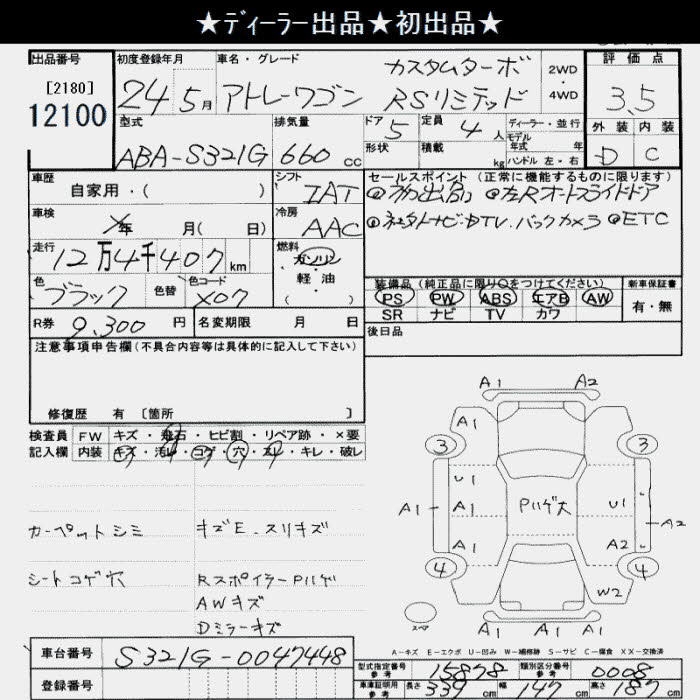 ★ディーラー出品★初出品★
出品番号 初度登録年月 車名・グレード 評価点
[2180]
12100
24 5月 アトレーワゴン カスタムターボ RSリミテッド
2WD・4WD
3.5
外装 内装
D C
型式 排気量 ドア 定員 ディーラー・並行
ABA-S321G 660cc 5 4人
モデル年式 年
形状 積載 kg ハンドル 左・右
車歴 シフト セールスポイント (正常に機能するものに限ります)
自家用・( ) IAT
①初出品 ②左Rオートスライドドア
車検 冷房
年 月( 日) AAC
③社外ナビ・DTV.バックカメラ ④ETC
走行 燃料
12万4千407km
ガソリン・軽油・( )
色 色替 色コード
ブラック X07
装備品(純正品に限り○をつけてください) 新車保証書
PS PW ABS エアB AW 有・無
SR ナビ TV カワ
R券 9,300円 名変期限 月 日
後日品
注意事項申告欄(不具合内容等は具体的に記入して下さい)
修復歴 有 [箇所 ]
検査員記入欄 FW キズ・飛石・ヒビ割・リペア跡・×要
内装 キズ・汚レ・コゲ・穴・スレ・キレ・破レ
カーペットシミ キズE.スリキズ
シートコゲ穴 RスポイラーPハゲ
AWキズ
Dミラーキズ
A1 A2
A1
3 3
U1
A1 A1 Pハゲ大 U1 A2
A1 A2
4 4
W2
スペア A1 A1 A1
A-キズ E-エクボ U-凹み W-補修跡 S-サビ C-腐食 XX-交換済
車台番号 S321G-0047448
登録番号
型式指定番号 参考 15878 類別区分番号 参考 0008
車庫証明用 参考 長さ 339cm 幅 147cm 高さ 187cm